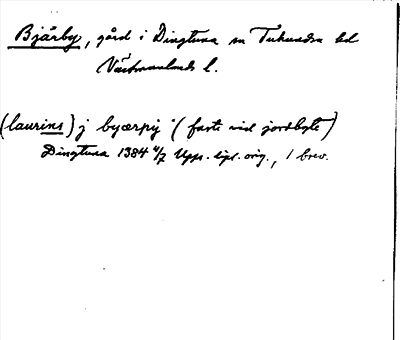 Bjärby, gård i Dingtuna sn Tuhundra hd
Västmanlands l.
(laurins) j byærpij (faste vid jordbyte)
Dingtuna 1384 4/7 Upps. dipl. orig., 1 brev.